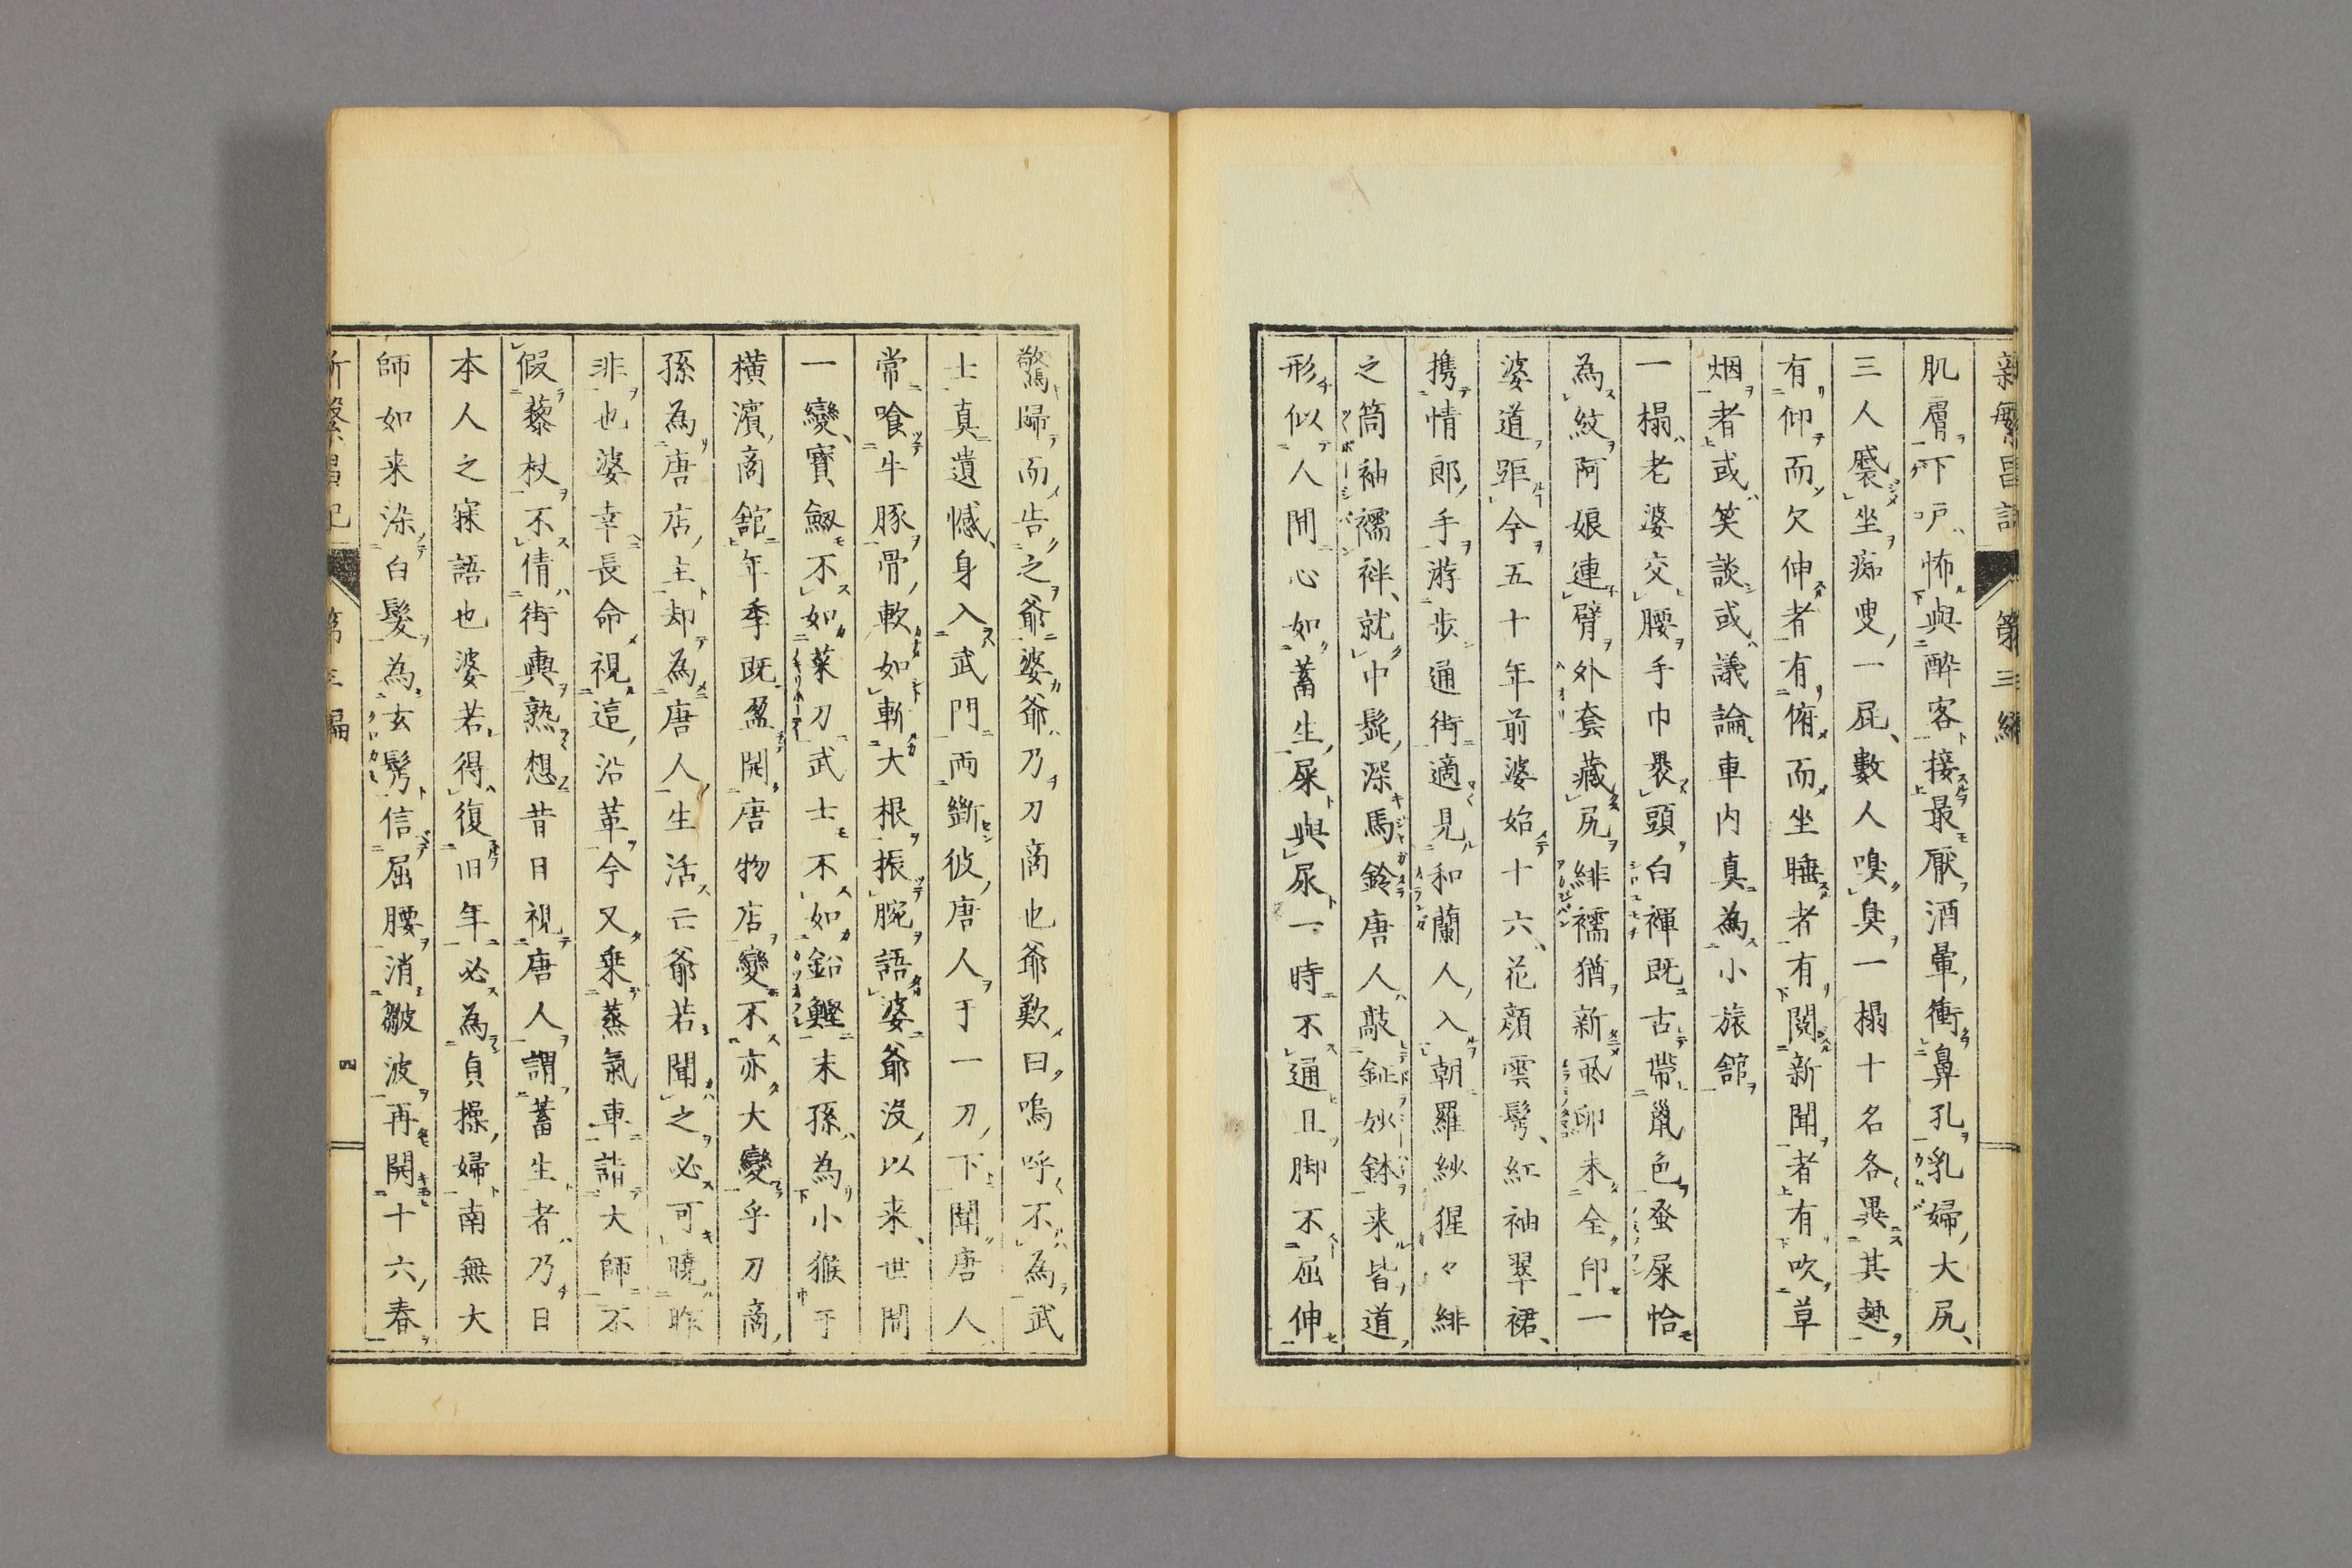 新繁昌記 第三編
肌膚下戸怖與醉客接最厭酒暈衝鼻孔乳婦大尻
三人褩坐痴叟一屁數人嗅臭一榻十名各異其趣
有仰而欠伸者有俯而坐睡者有閱新聞者有吹草
烟者或笑談或議論車内真為小旅舘
一榻老婆交腰手巾褁頭白褌既古帶嵐色蚤屎恰
為紋阿娘連臂外套藏尻緋襦猶新虱卵未全印一
婆道距今五十年前婆始十六花顔雲鬂紅袖翠裙
携情郎手游歩通街適見和蘭人入朝羅紗猩々緋
之筒袖襦袢就中髭深馬鈴唐人敲鉦妙鉢来皆道
形似人間心如蓄生屎與尿一時不通且脚不屈伸
驚歸而告之爺婆爺乃刀商也爺歎曰嗚呼不為武
士真遺憾身入武門両斷彼唐人于一刀下聞唐人
常喰牛豚骨軟如斬大根振腕語婆爺没以来世間
一變寶劔不如菜刀武士不如鉛鰹末孫為小猴于
横濱商舘年季既盈開唐物店變不亦大變乎刀商
孫為唐店主却為唐人生活亡爺若聞之必可曉昨
非也婆幸長命視這沿革今又乗蒸氣車詣大師不
假藜杖不倩街輿熟想昔日視唐人謂蓄生者乃日
本人之寐語也婆若得復旧年必為貞操婦南無大
師如来染白髮為玄鬂信屈腰消皺波再開十六春
新繁昌記 第三編 四